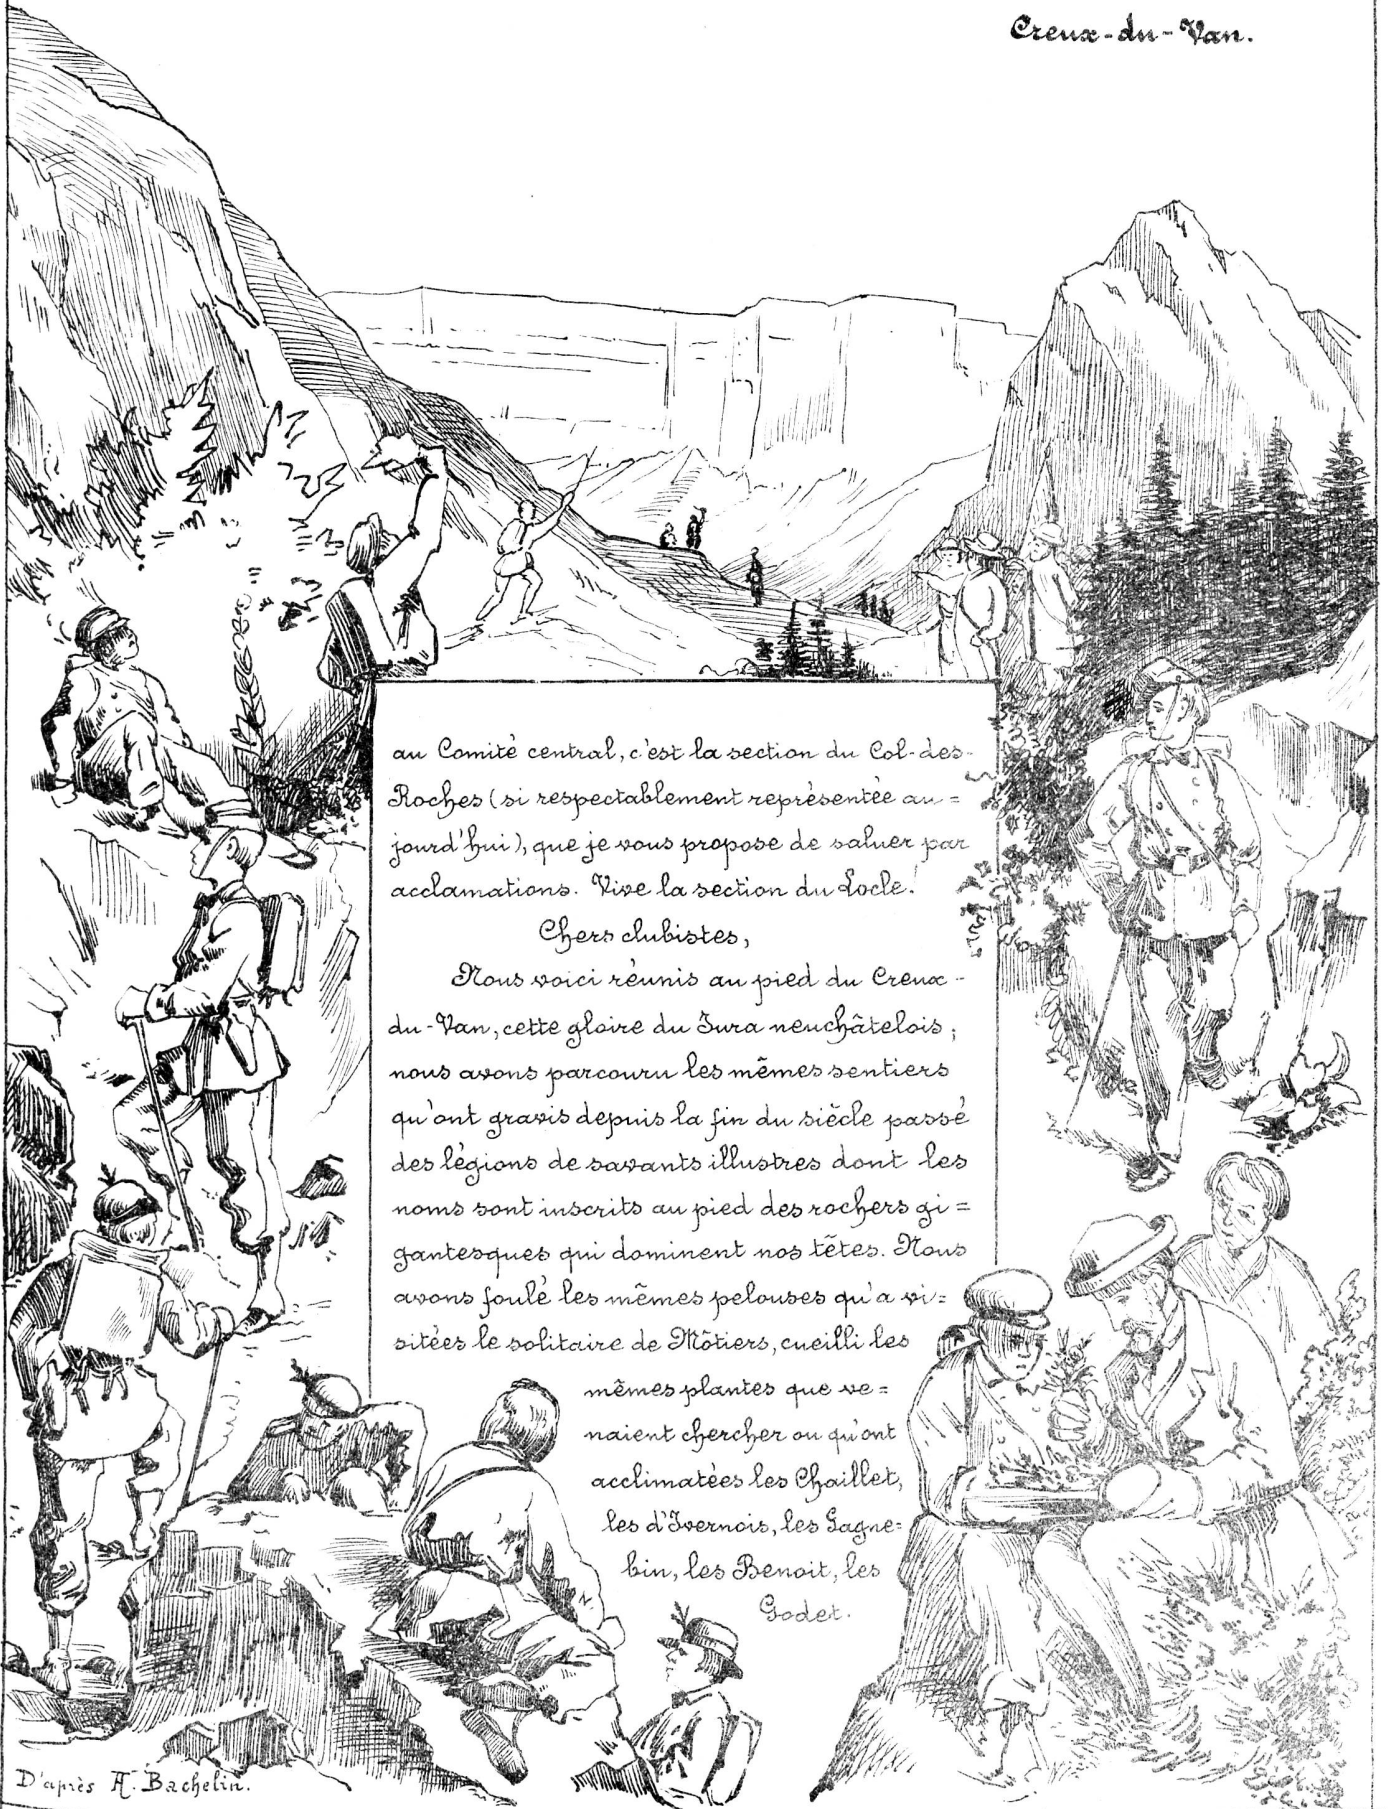 Creux-du-Van.
au Comité central, c'est la section du Col-des-
Roches (si respectablement représentée au=
jourd'hui), que je vous propose de saluer par
acclamations. Vive la section du Locle!
Chers clubistes,
Nous voici réunis au pied du Creux-
du-Van, cette gloire du Jura neuchâtelois;
nous avons parcouru les mêmes sentiers
qu'ont gravis depuis la fin du siècle passé
des légions de savants illustres dont les
noms sont inscrits au pied des rochers gi=
gantesques qui dominent nos têtes. Nous
avons foulé les mêmes pelouses qu'a vi=
sitées le solitaire de Môtiers, cueilli les
mêmes plantes que ve=
naient chercher ou qu'ont
acclimatées les Chaillet,
les d'Ivernois, les Gagne=
bin, les Benoit, les
Godet.
D'après A. Bachelin.